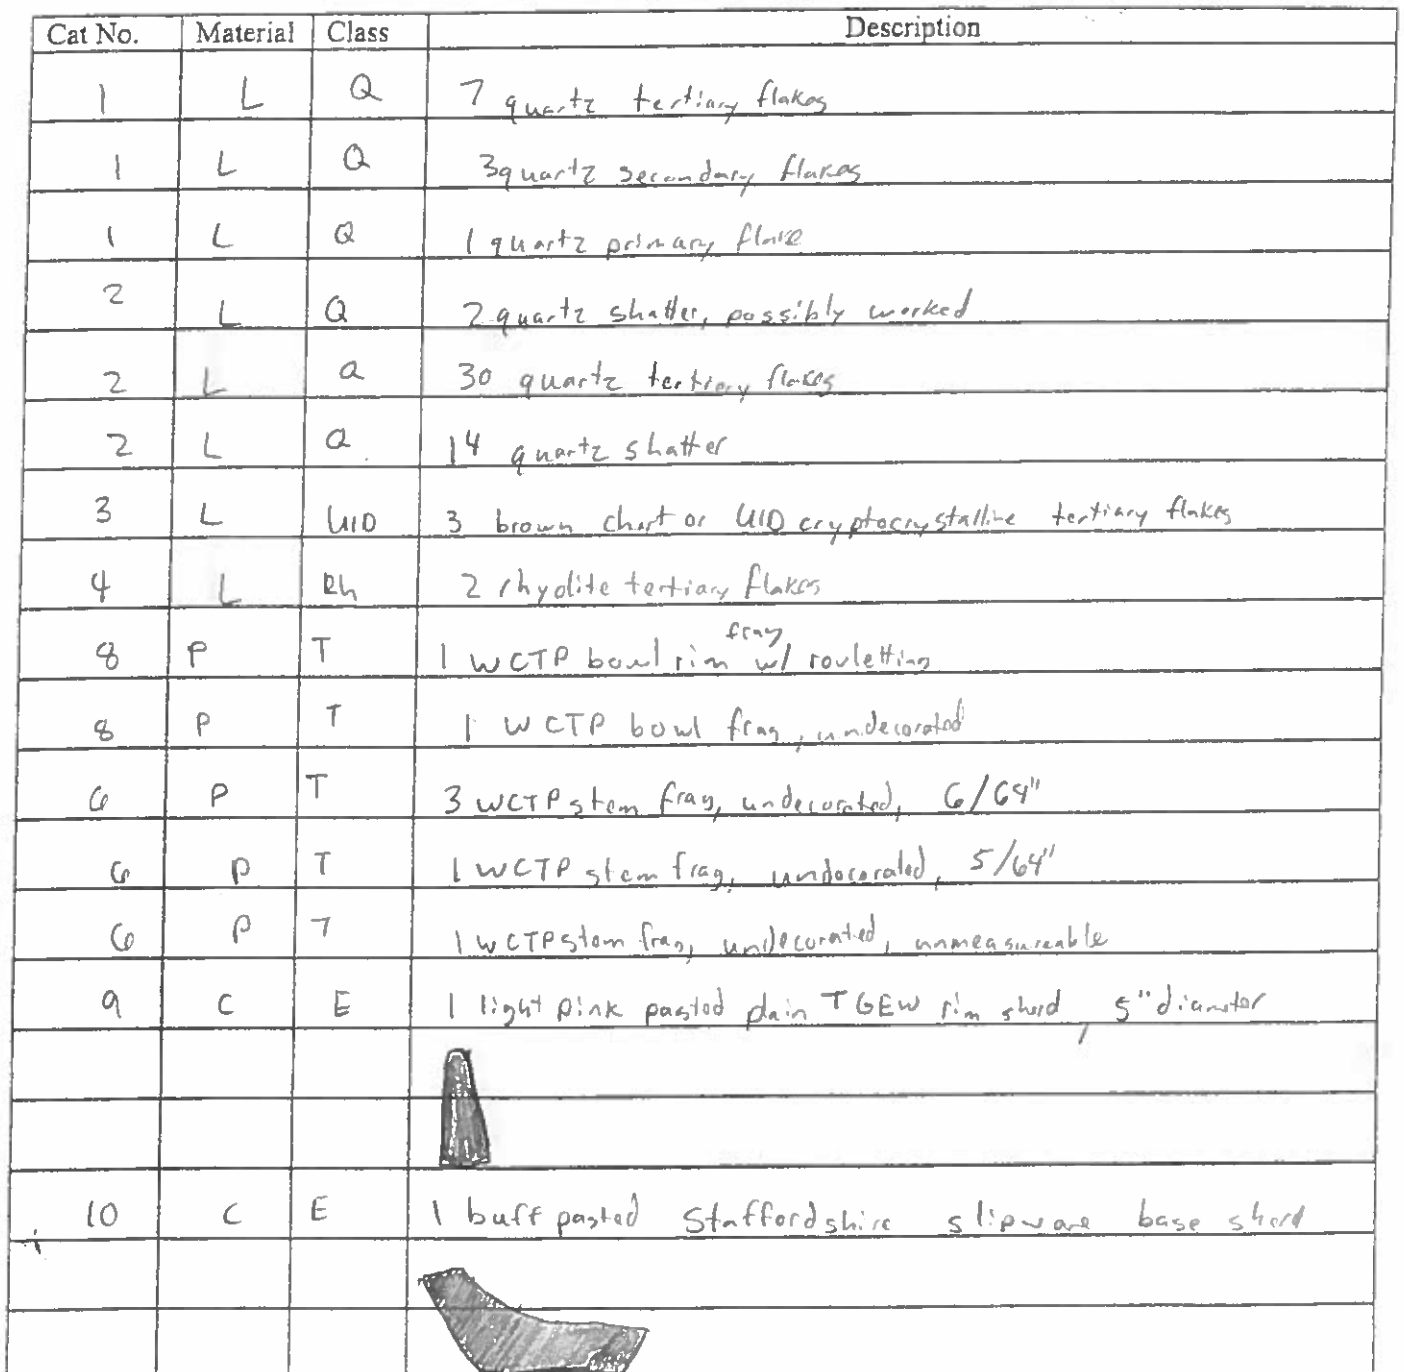 Cat No. Material Class Description
1 L Q 7 quartz tertiary flakes
1 L Q 3 quartz secondary flakes
1 L Q 1 quartz primary flake
2 L Q 2 quartz shatter, possibly worked
2 L Q 30 quartz tertiary flakes
2 L Q 14 quartz shatter
3 L UID 3 brown chert or UID cryptocrystalline tertiary flakes
4 L Rh 2 rhyolite tertiary flakes
8 P T 1 WCTP bowl rim frag w/ rouletting
8 P T 1 WCTP bowl frag, undecorated
6 P T 3 WCTP stem frag, undecorated, 6/64"
6 P T 1 WCTP stem frag, undecorated, 5/64"
6 P T 1 WCTP stem frag, undecorated, unmeasureable
9 C E 1 light pink pasted plain TGEW rim sherd, 5" diameter
10 C E 1 buff pasted Staffordshire slipware base sherd